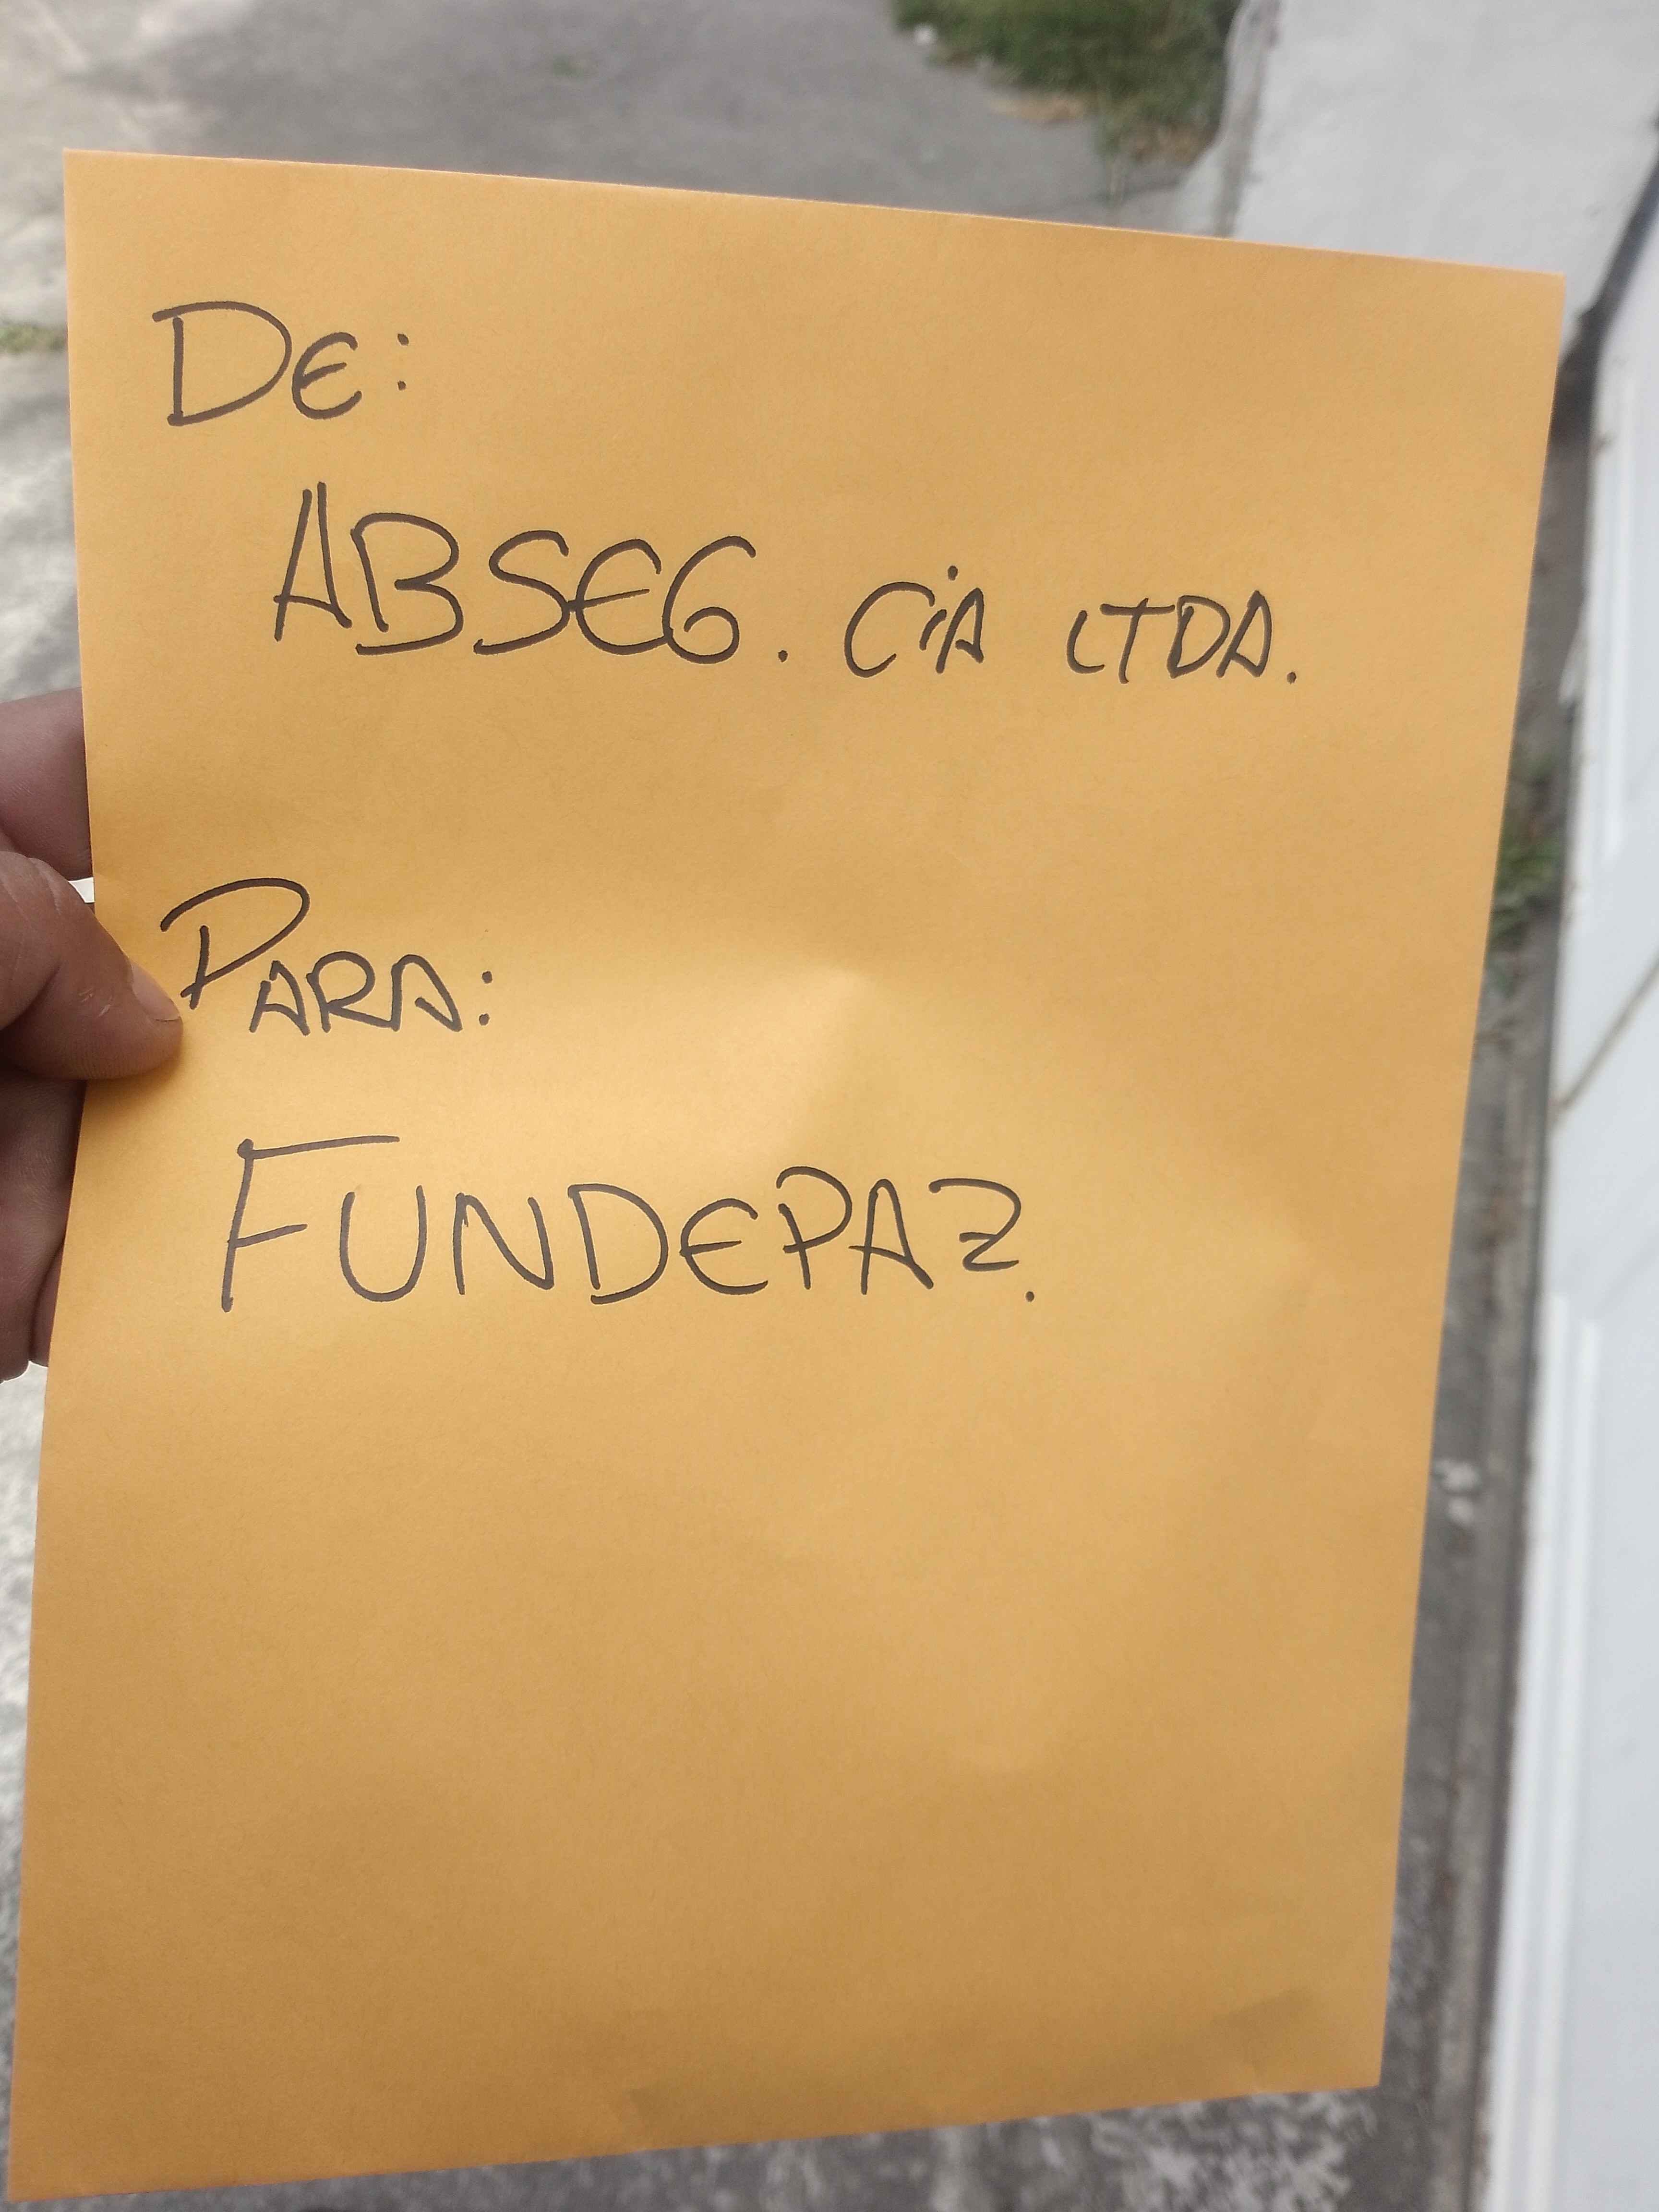 DE:
ABSEG. CiA LTDA.
PARA:
FUNDEPAZ.